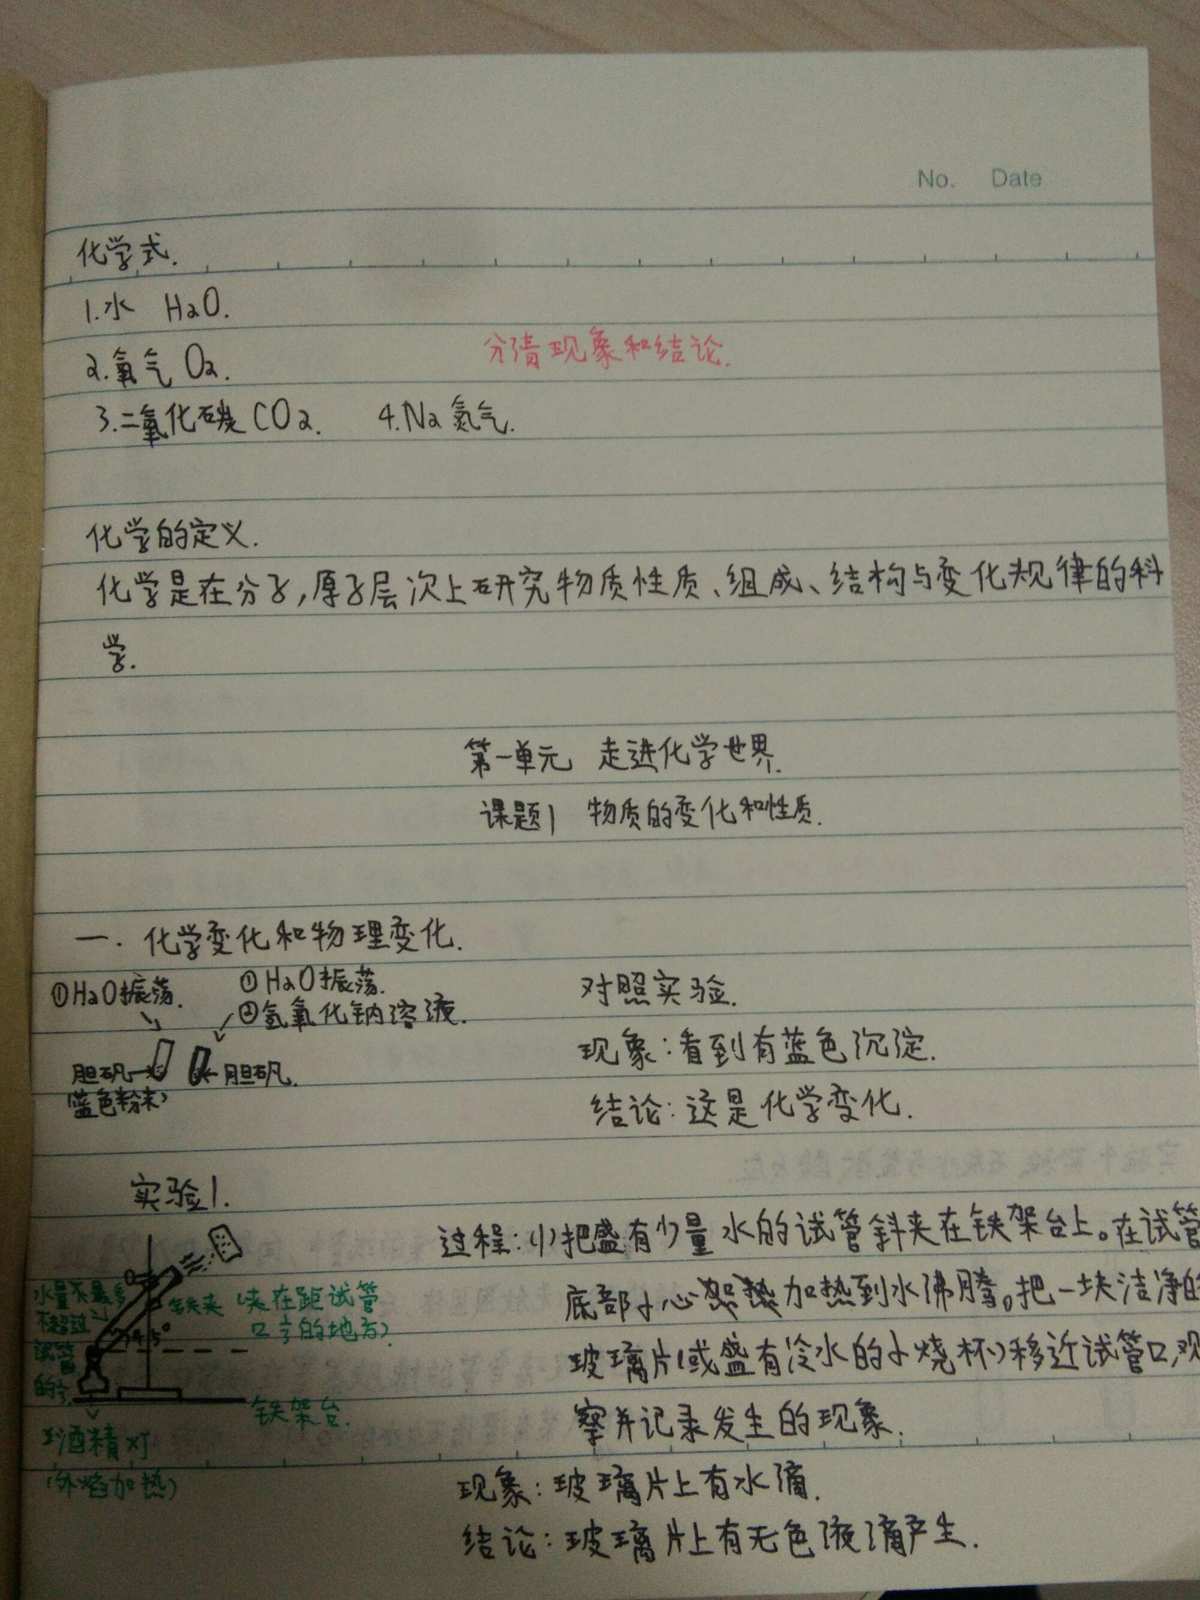 No. Date
化学式.
1.水 H2O.
2.氧气 O2.
分清现象和结论.
3.二氧化碳 CO2. 4.N2 氮气.
化学的定义.
化学是在分子,原子层次上研究物质性质、组成、结构与变化规律的科
学.
第一单元 走进化学世界.
课题1 物质的变化和性质.
一. 化学变化和物理变化.
①H2O振荡.
①H2O振荡.
②氢氧化钠溶液.
胆矾
(蓝色粉末)
胆矾.
对照实验.
现象:看到有蓝色沉淀.
结论:这是化学变化.
实验1.
水量不最多
不超过
试管
的
铁夹 (夹在距试管
口 的地方)
45°
铁架台.
酒精灯
(外焰加热)
过程:(1)把盛有少量水的试管斜夹在铁架台上。在试管
底部小心加热到水沸腾。把一块洁净的
玻璃片(或盛有冷水的小烧杯)移近试管口,观
察并记录发生的现象.
现象:玻璃片上有水滴.
结论:玻璃片上有无色液滴产生.